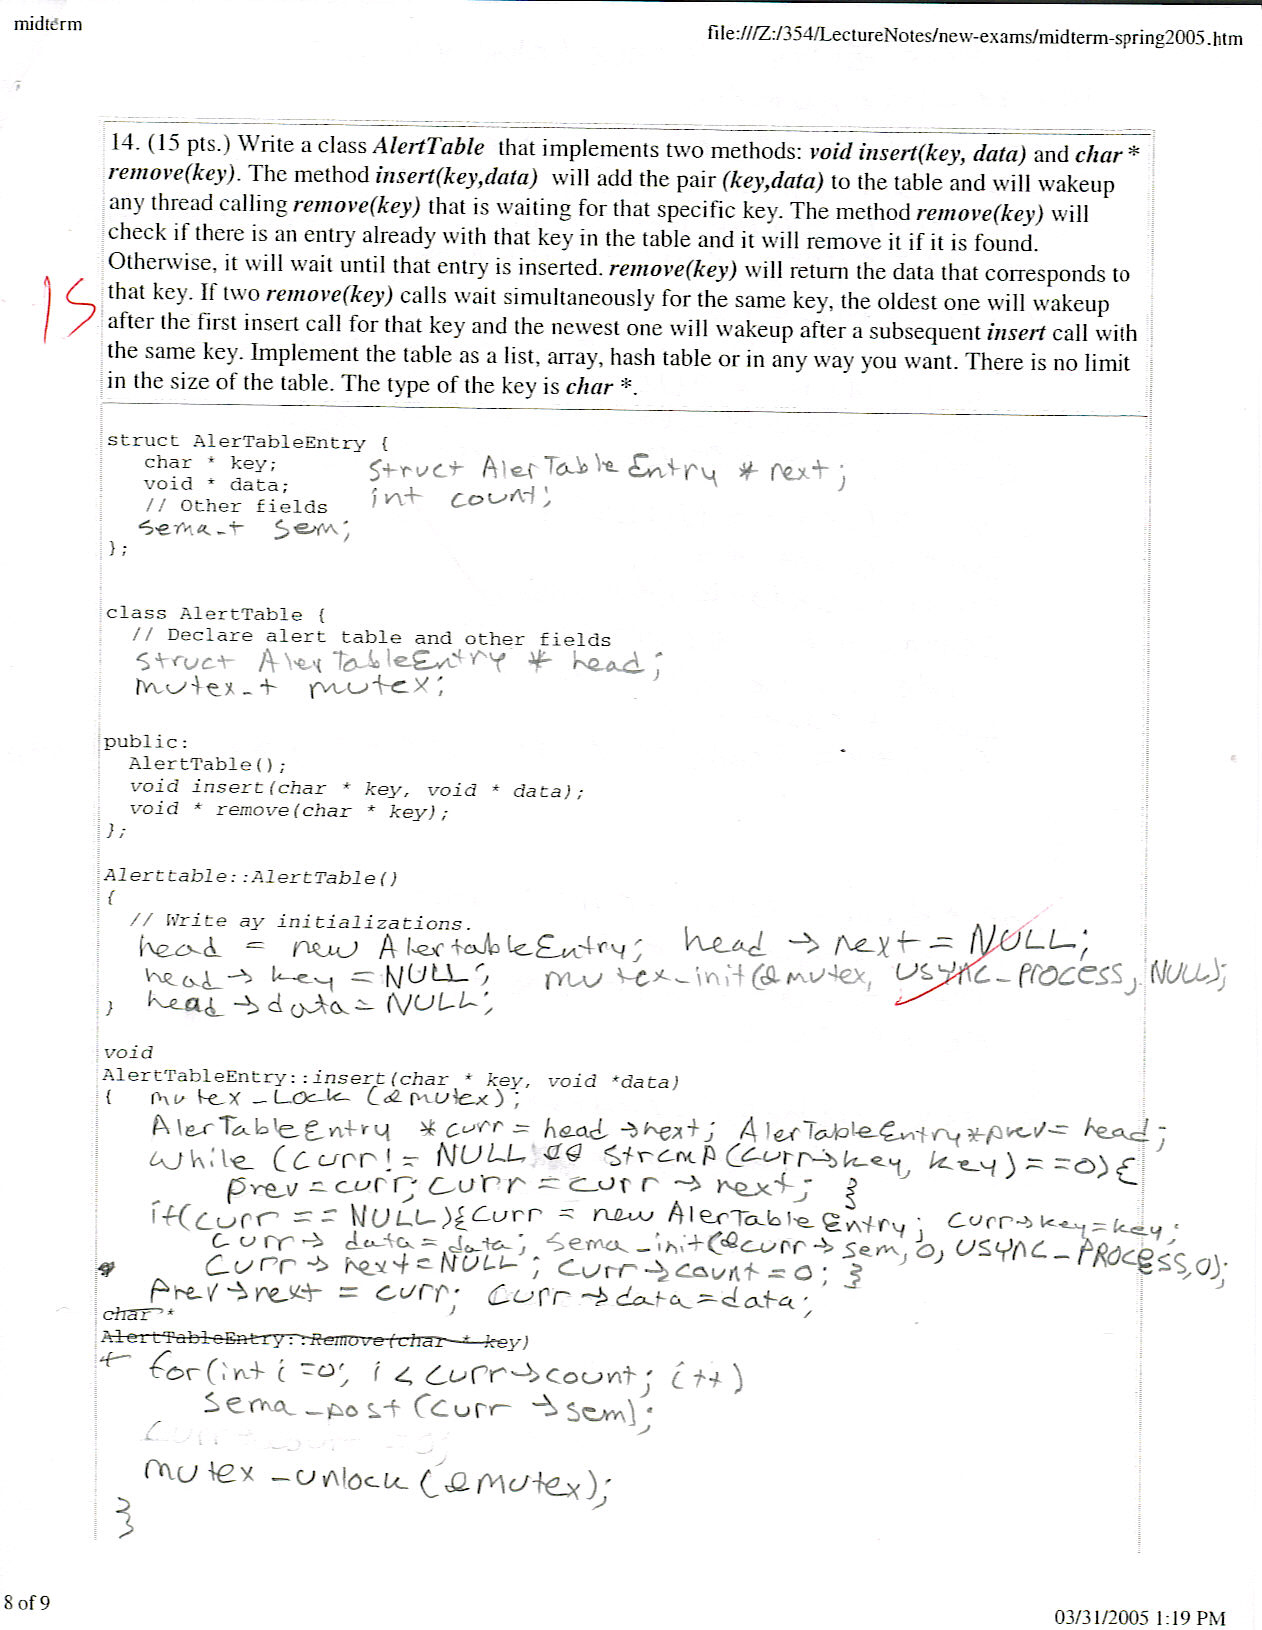 midterm
file:///Z:/354/LectureNotes/new-exams/midterm-spring2005.htm
14. (15 pts.) Write a class AlertTable that implements two methods: void insert(key, data) and char *
remove(key). The method insert(key,data) will add the pair (key,data) to the table and will wakeup
any thread calling remove(key) that is waiting for that specific key. The method remove(key) will
check if there is an entry already with that key in the table and it will remove it if it is found.
Otherwise, it will wait until that entry is inserted. remove(key) will return the data that corresponds to
that key. If two remove(key) calls wait simultaneously for the same key, the oldest one will wakeup
after the first insert call for that key and the newest one will wakeup after a subsequent insert call with
the same key. Implement the table as a list, array, hash table or in any way you want. There is no limit
in the size of the table. The type of the key is char *.
15
struct AlerTableEntry {
char * key; struct AlerTableEntry * next;
void * data;
// Other fields int count;
sema_t sem;
};
class AlertTable {
// Declare alert table and other fields
struct AlerTableEntry * head;
mutex_t mutex;
public:
AlertTable();
void insert(char * key, void * data);
void * remove(char * key);
};
Alerttable::AlertTable()
{
// Write ay initializations.
head = new AlertableEntry; head -> next = NULL;
head -> key = NULL; mutex_init(&mutex, USYNC_PROCESS, NULL);
} head -> data = NULL;
void
AlertTableEntry::insert(char * key, void *data)
{ mutex_Lock (&mutex);
AlerTableEntry * curr = head ->next; AlerTableEntry *prev= head;
while (curr != NULL && strcmp(curr->key, key)==0){
prev = curr; curr = curr -> next; }
if(curr == NULL){curr = new AlerTableEntry; curr->key=key;
curr -> data = data; sema_init(&curr->sem, 0, USYNC_PROCESS, 0);
curr -> next = NULL; curr->count = 0; }
prev->next = curr; curr->data=data;
char *
AlertTableEntry::Remove(char * key)
for(int i =0; i < curr->count; i++)
sema_post (curr ->sem);
mutex_unlock (&mutex);
}
8 of 9
03/31/2005 1:19 PM